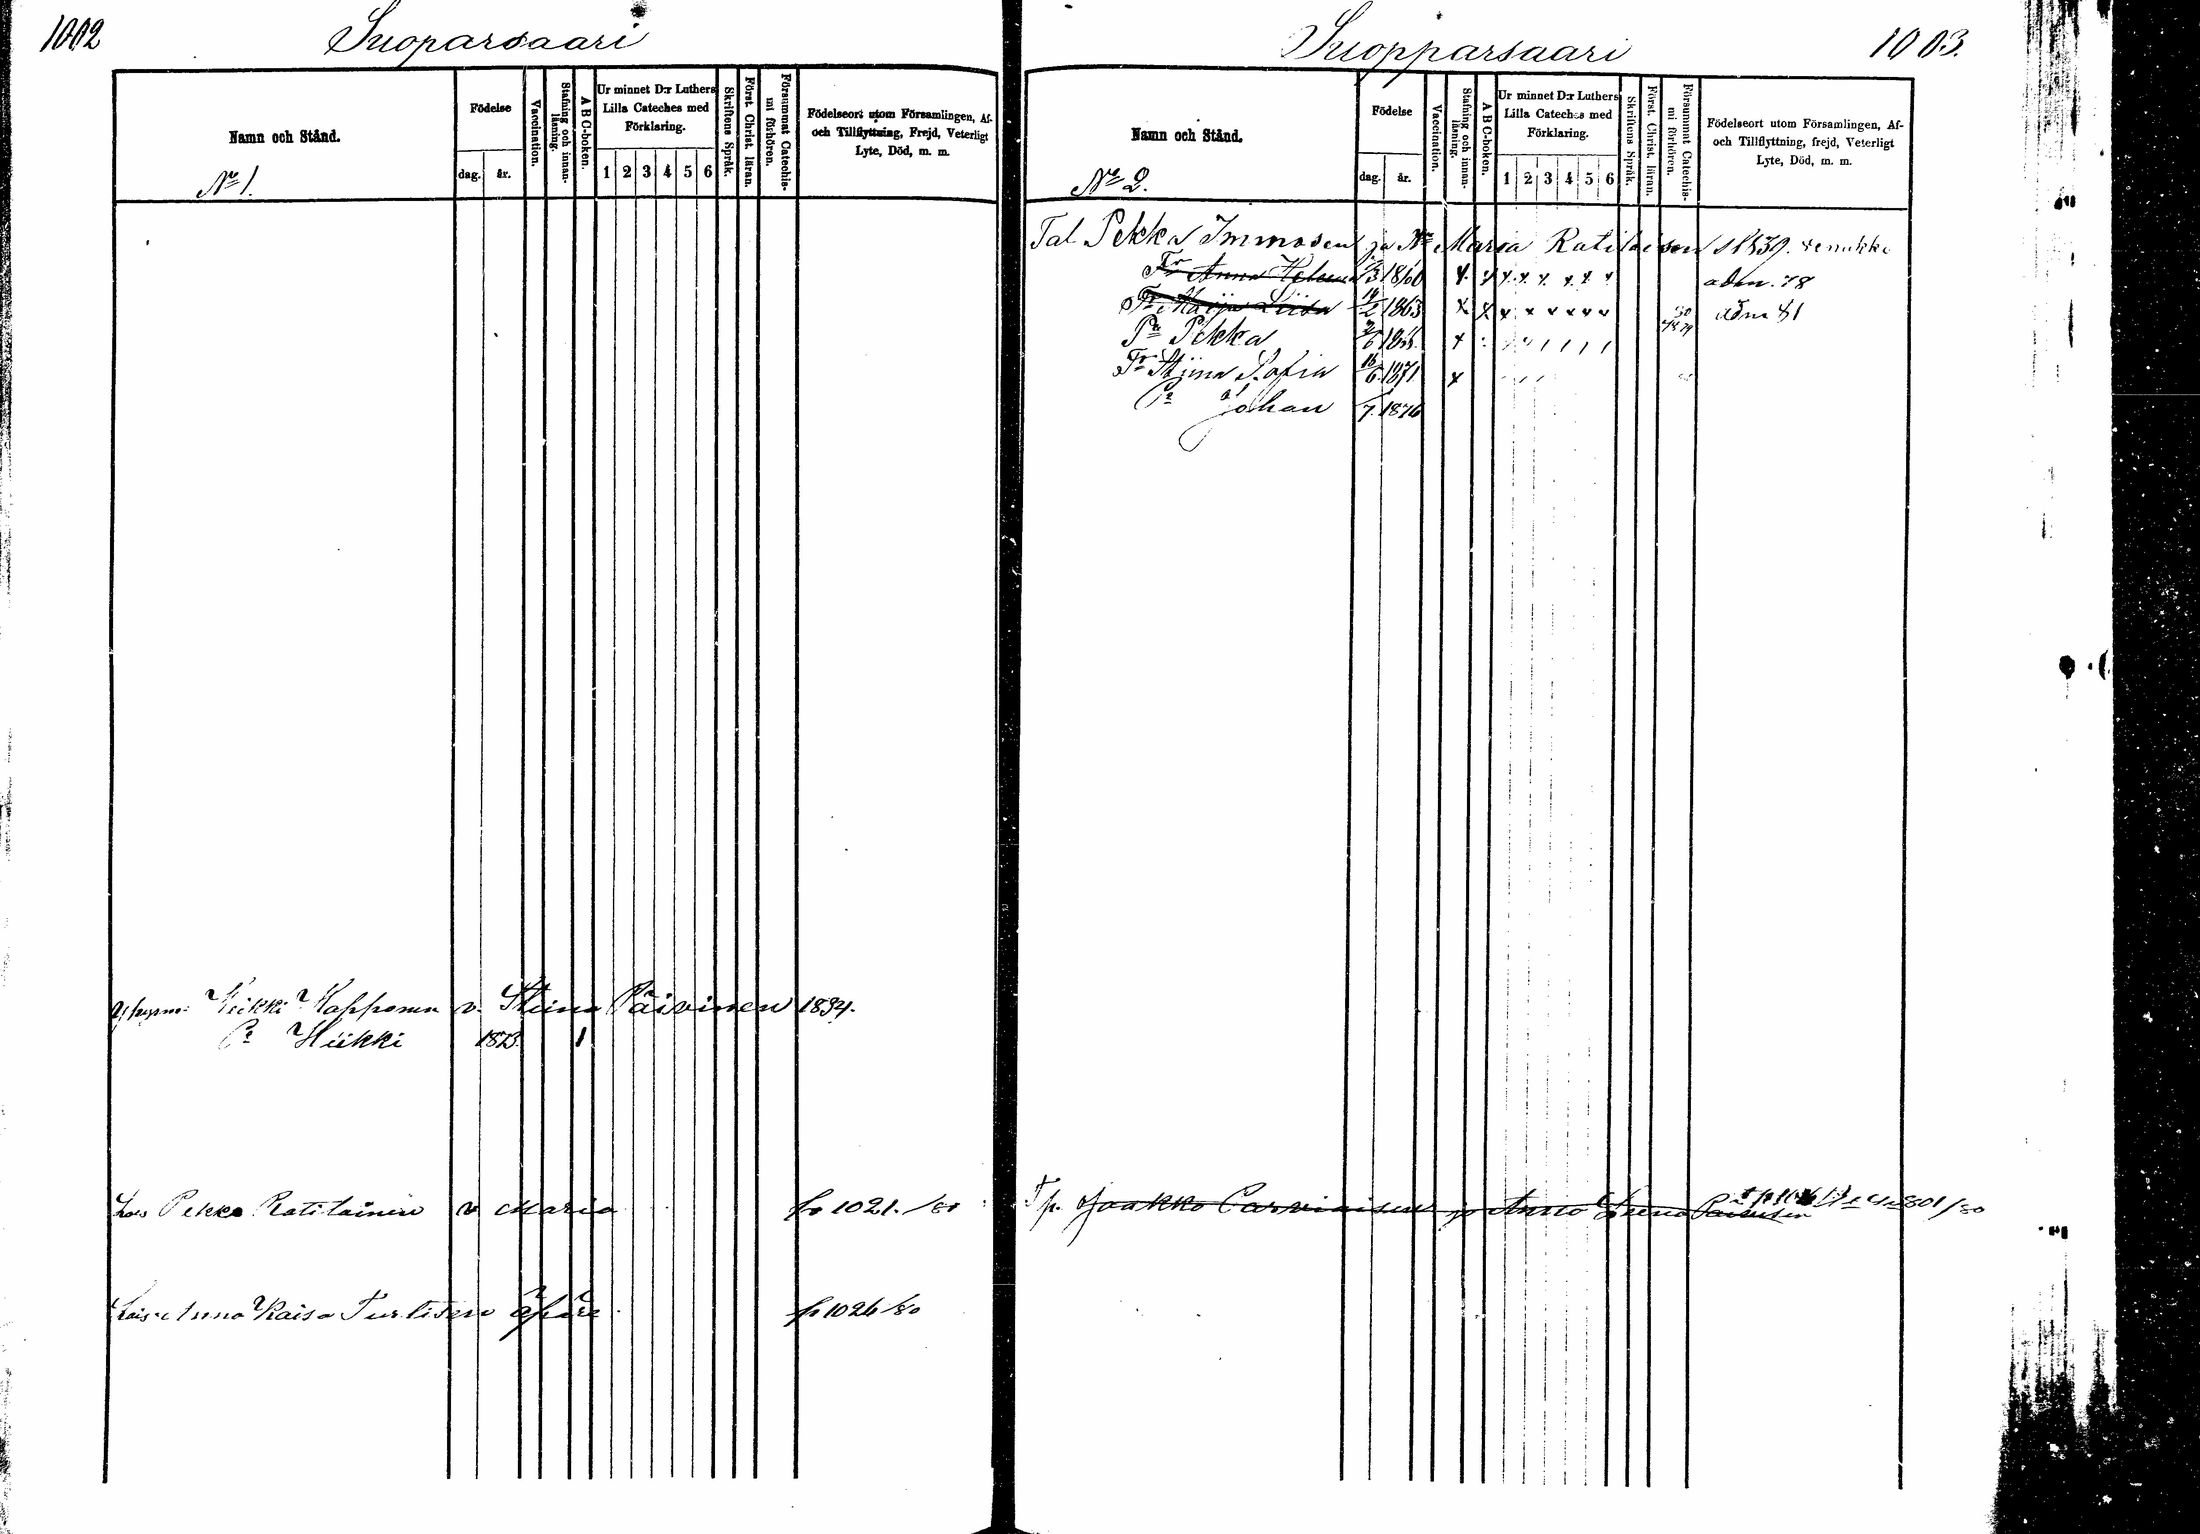 1002
Suoparsaari
Namn och Stånd.
Födelse
dag.
år.
Vaccination.
Stafning och innan-
läsning.
A B C-boken.
Ur minnet D:r Luthers
Lilla Cateches med
Förklaring.
1 2 3 4 5 6
Skriftens Språk.
Först. Christ. läran.
Försummat Catechis-
mi förhören.
Födelseort utom Församlingen, Af-
och Tillflyttning, Frejd, Veterligt
Lyte, Död, m. m.
No 1.
Heikki Happonen v. Stiina Päivinen 1834.
Pa Heikki 1873. 1
Lois Pekka Ratilainen v Maria fr 1021./80
Lois: Anna Kaisa Turtisen äpäre fr 1026/80
Suopparsaari
1003.
Namn och Stånd.
Födelse
dag.
år.
Vaccination.
Stafning och innan-
läsning.
A B C-boken.
Ur minnet D:r Luthers
Lilla Cateches med
Förklaring.
1 2 3 4 5 6
Skriftens Språk.
Först. Christ. läran.
Försummat Catechis-
mi förhören.
Födelseort utom Församlingen, Af-
och Tillflyttning, frejd, Veterligt
Lyte, Död, m. m.
No 2.
Tal Pekka Immosen ja Maria Ratilaisen 1839.
Tr Anna Helena 1860 adm. 78
Tr Maija Liisa 1863 adm 81
Pa Pekka
Tr Stiina Sofia 16/6 1871
Pa Johan 1876
Tp. Jaakko Parviaisen ja Anna Päivisen 801/80